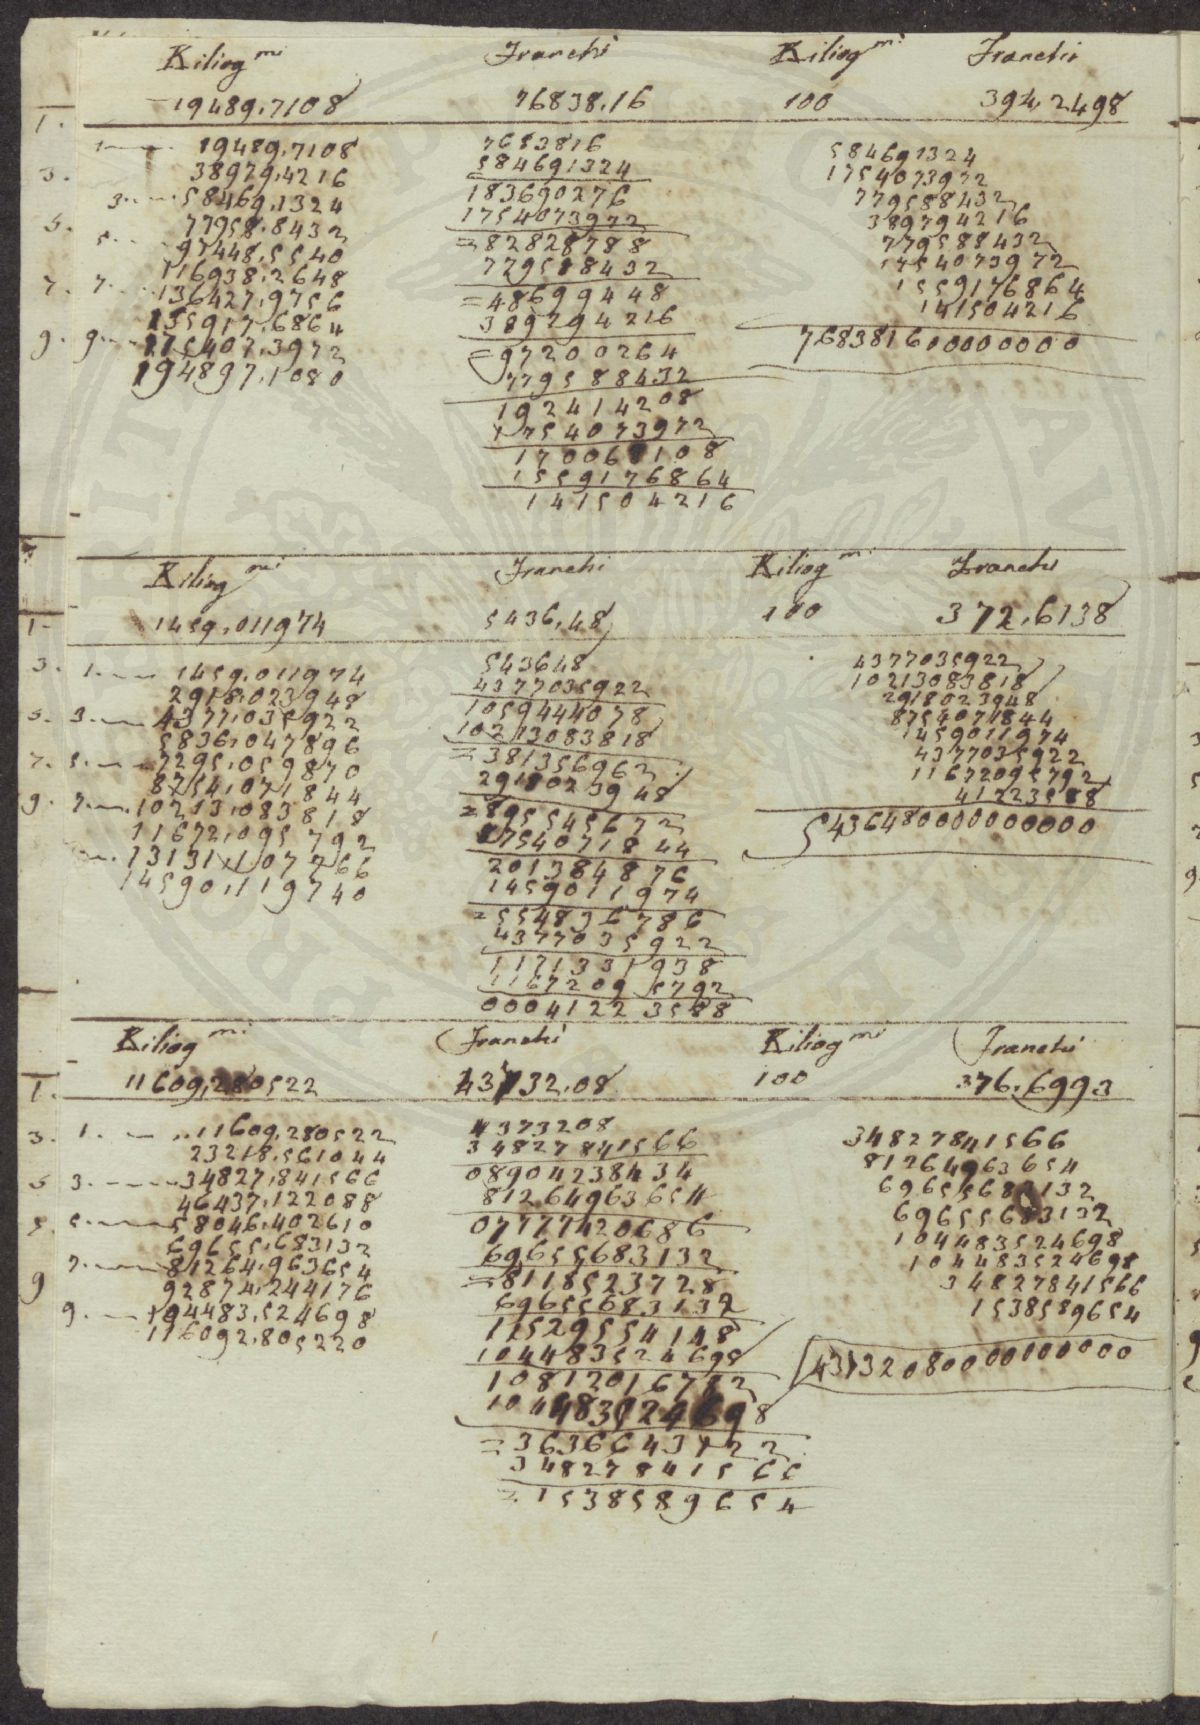 Kiliog mi Franchi Kiliog mi Franchi
19489,7108 76838,16 100 394,2498
1 19489,7108
38979,4216
3 58469,1324
77958,8432
5 97448,5540
116938,2648
7 136427,9756
155917,6864
9 175407,3972
194897,1080
7683816
584691324
183690276
1754073972
=82828788
779588432
=48699448
389794216
=97200264
779588432
192414208
1754073972
170068108
1559176864
141504216
584691324
1754073972
779588432
389794216
779588432
1754073972
1559176864
141504216
768381600000000
Kiliog mi Franchi Kiliog mi Franchi
1459,011974 5436,48 100 372,6138
1 1459,011974
2918,023948
3 4377,035922
5836,047896
5 7295,059870
8754,071844
7 10213,083818
11672,095792
13131,107766
14590,119740
543648
4377035922
1059444078
10213083818
=381356962
2918023948
=8955456 72
8754071844
2013848 76
1459011974
=554836786
4377035922
1171331938
11672095792
00041223588
4377035922
10213083818
2918023948
8754071844
1459011974
4377035922
11672095792
41223588
5436480000000000
Kiliog mi Franchi Kiliog mi Franchi
11609,280522 43732,08 100 376,6993
1 11609,280522
23218,561044
3 34827,841566
46437,122088
5 58046,402610
69655,683132
7 81264,963654
92874,244176
9 104483,524698
116092,805220
4373208
34827841566
08904238434
81264963654
07777420686
69655683132
=8118523728
69655683132
11529554148
104483524698
10812016782
104483524698
=3636643122
34827841566
=1538589654
34827841566
81264963654
69655683132
69655683132
104483524698
104483524698
34827841566
1538589654
43732080000000000